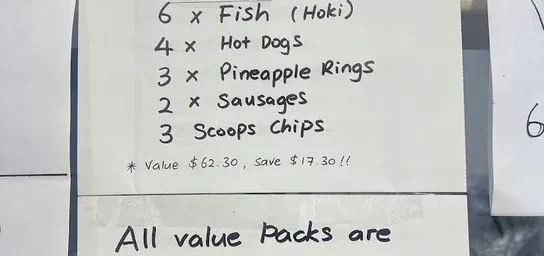 6 x Fish (Hoki)
4 x Hot Dogs
3 x Pineapple Rings
2 x Sausages
3 Scoops Chips
* Value $62.30, Save $17.30!!
All value Packs are
6